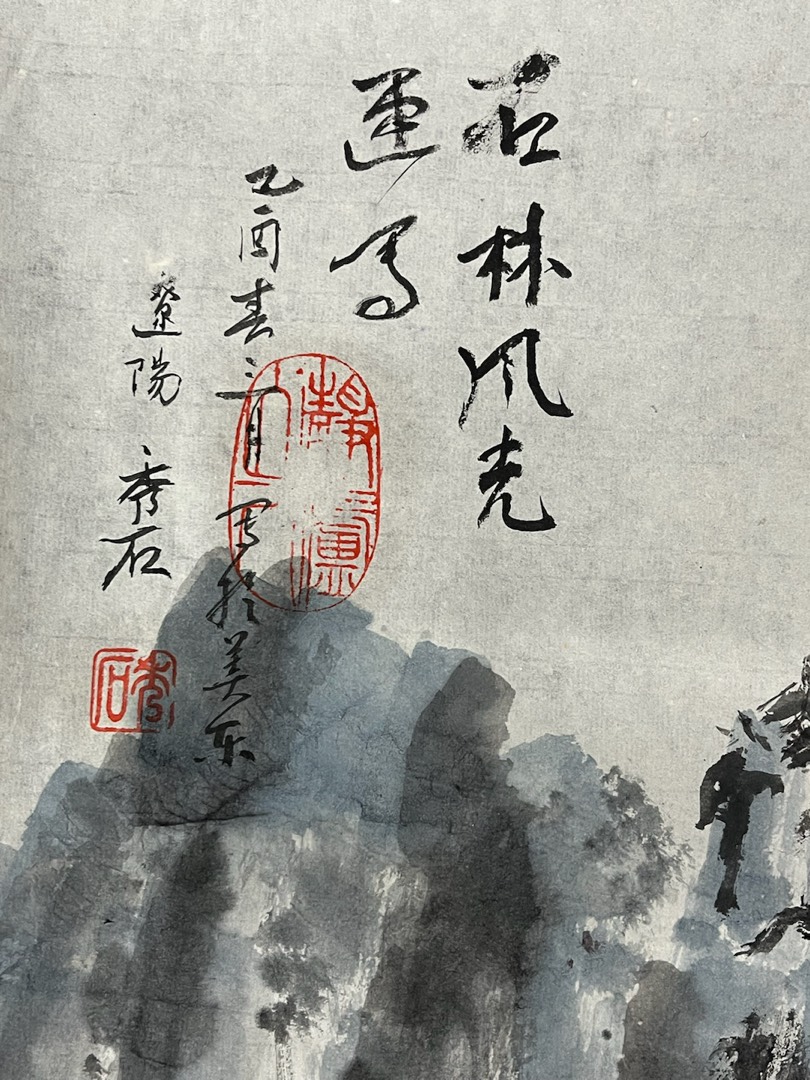 石林风光
運寫
乙酉春三月写於美东
遼陽 秀石
秀石